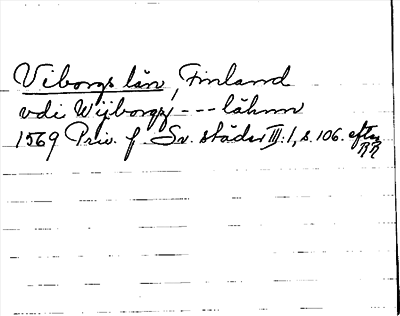 Viborgs län, Finland
vdi Wijborgz --- lähnn
1569 Priv. f. Sv. städer III:1, s. 106. efter RR